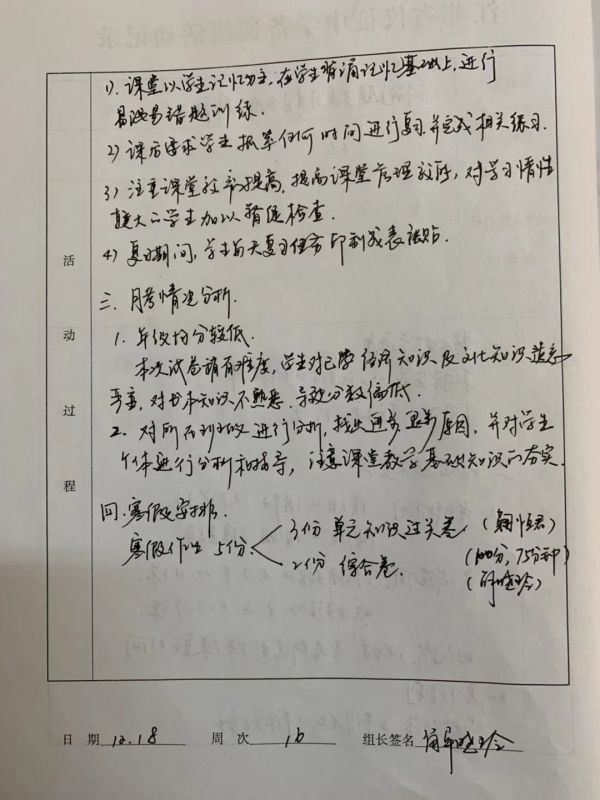 1). 课堂以学生记忆为主,在学生背诵记忆基础上,进行
易混易错题训练.
2) 课后要求学生抓单任何时间进行复习,并完成相关练习.
3) 注重课堂效率提高,提高课堂管理效所,对学习惰性
较大的学生加以督促检查.
4) 复习期间,学生每天复习任务印制成表张贴.
三. 月考情况分析.
1. 年级均分较低.
本次试卷稍有难度,学生对已学经济知识及文化知识遗忘
严重,对书本知识不熟悉.导致分数偏低.
2. 对所在班级进行分析,找出退步原因,并对学生
个体进行分析和指导,注意课堂教学基础知识的夯实.
四.寒假安排.
寒假作业 5份
3份 单元知识过关卷
2份 综合卷.
(100分,75分钟)
活动过程
日 期 12.18 周 次 16 组长签名